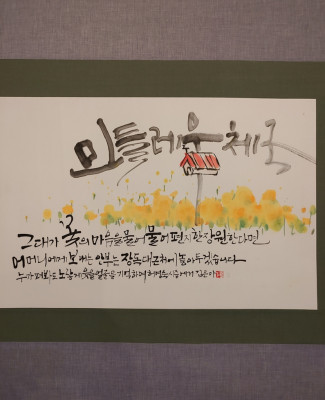 민들레우체국
그대가 꽃의 마음을 물어물어 편지 한 장 원한다면
어머니에게 보내는 안부는 장독대 근처에 놓아두겠습니다
누가 노랗게 웃을 얼굴을 기억하며 허영숙 시 에서